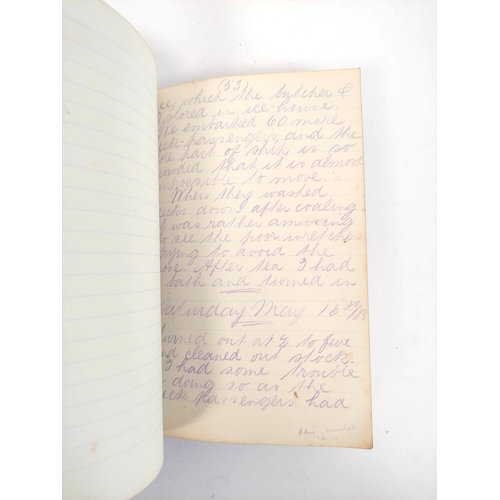 (33)
ice, which the butcher &
stored in ice-house.
We embarked 60 more
deck-passengers, and the
fore part of ship is so
crowded that it is almost
impossible to move.
When they washed
decks down after coaling
it was rather amusing
to see the poor wretches
trying to avoid the
hose. After tea I had
bath and turned in
Saturday May 16
Turned out at ¼ to five
and cleaned out stock.
I had some trouble
in doing so as the
deck passengers had